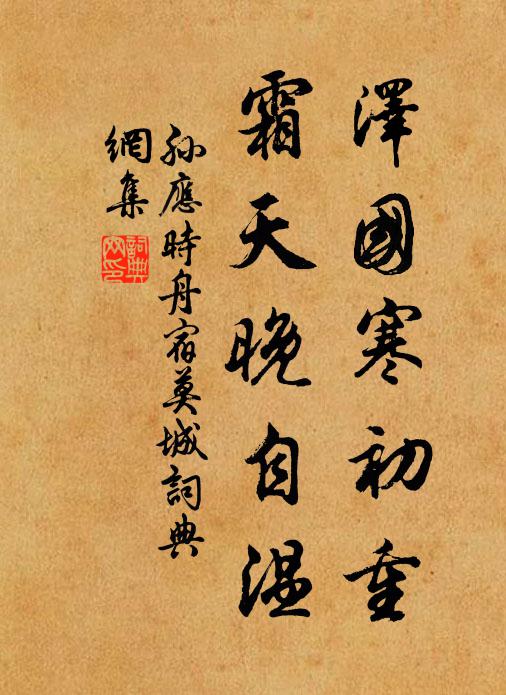 澤國寒初重
霜天晚自溫
孫應時舟宿莫城詞典
網集
詞典
网印